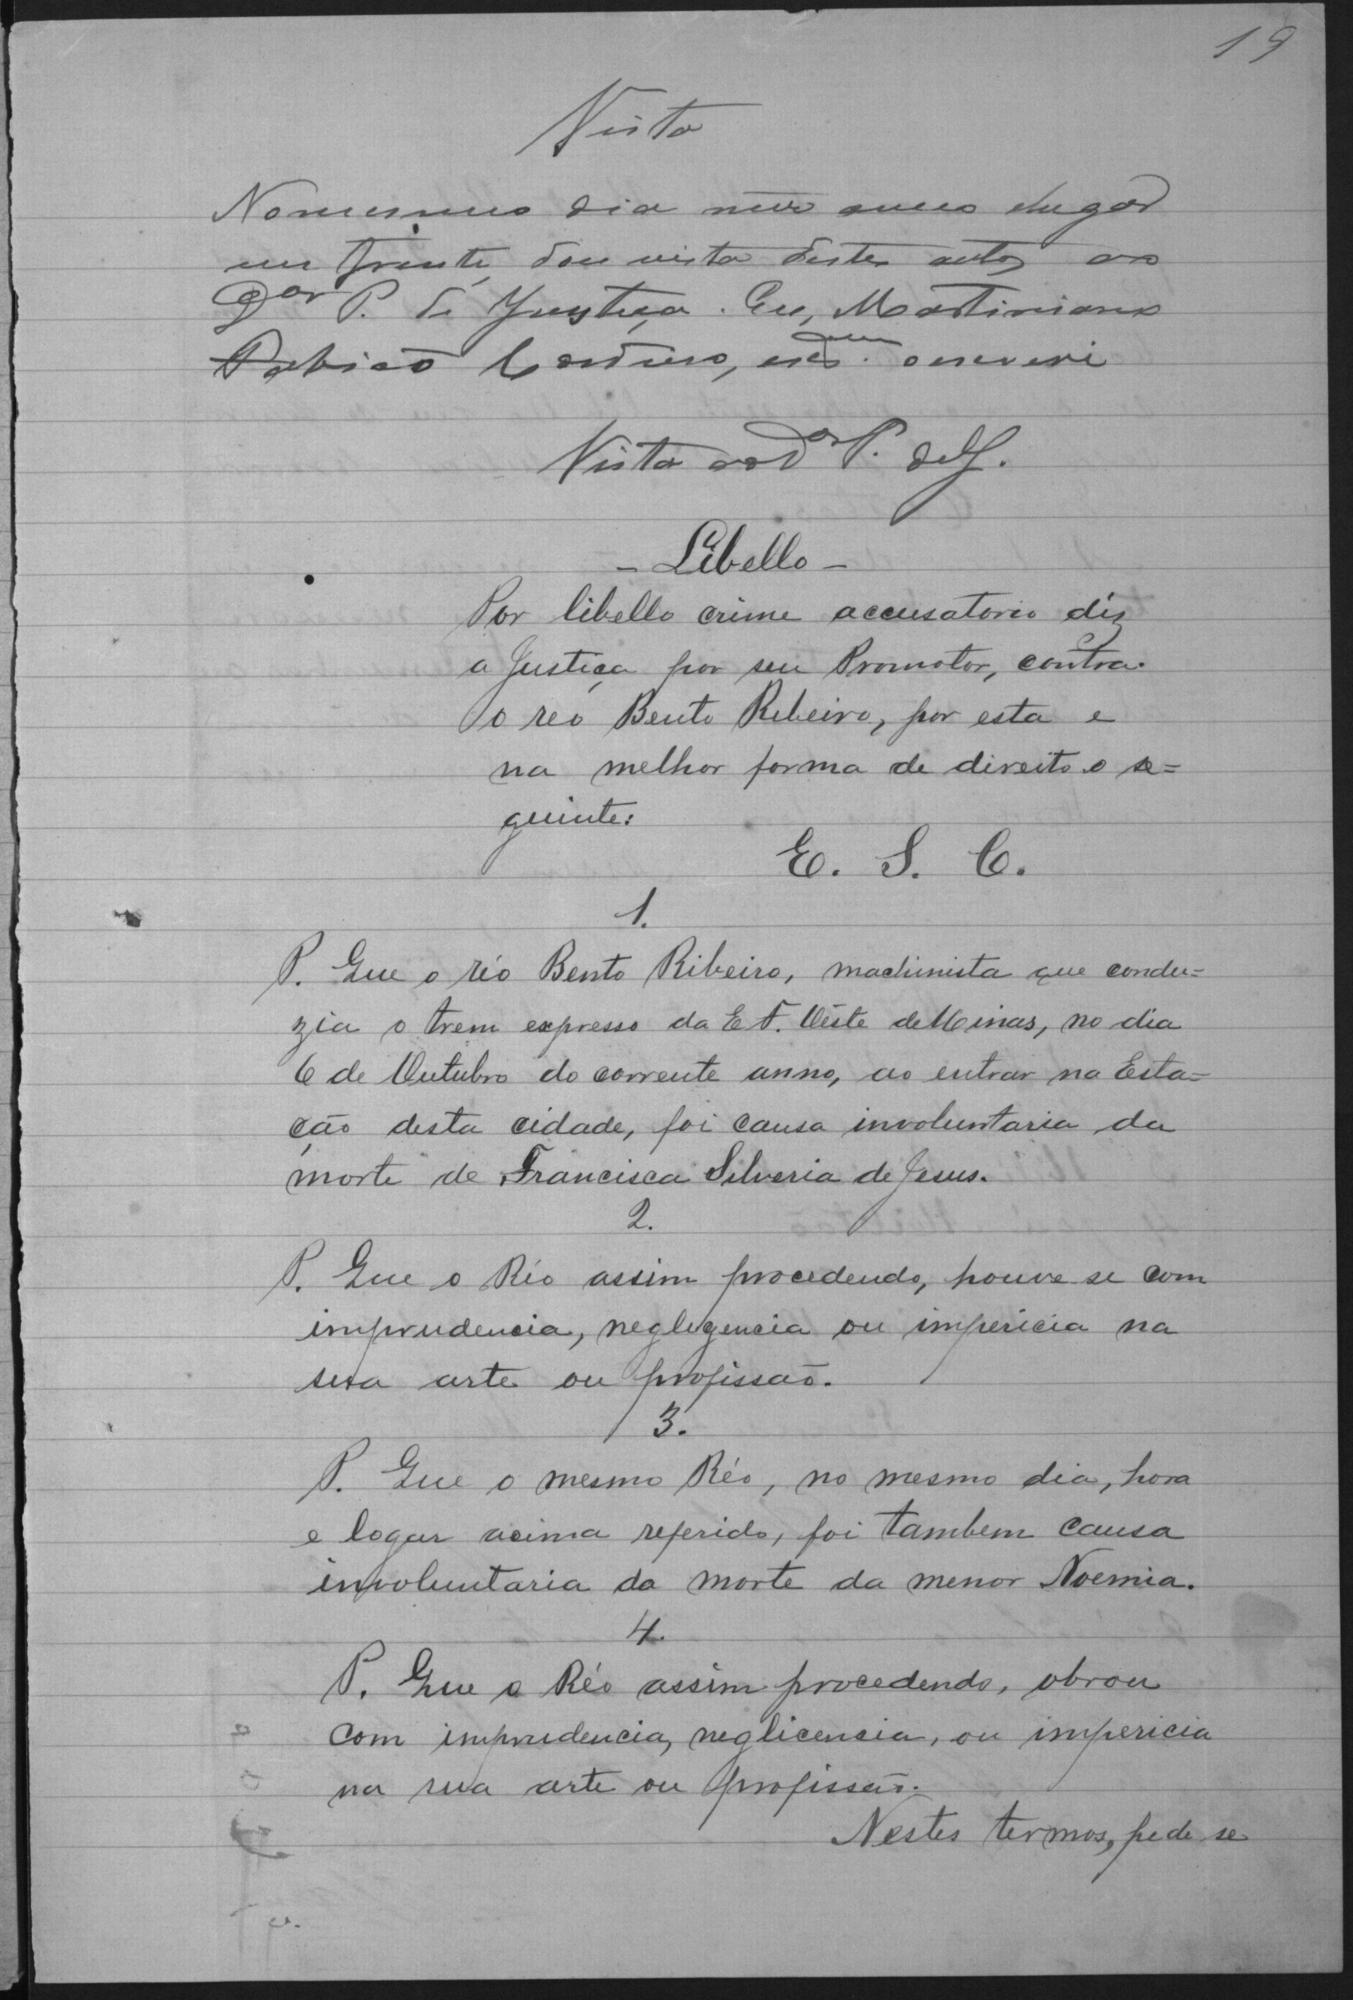 19
Vista
No mesmo dia mez anno e lugar
em frente, dou vista destes autos ao
Dor P. de Justiça. Eu, Martiniano
Cardoso, escam. o escrevi
Vista ao Dor P. de J.
- Libello -
Por libello crime accusatorio diz
a Justiça por seu Promotor, contra
o reo Bento Ribeiro, por esta e
na melhor forma de direito o se=
guinte:
E. S. C.
1.
P. Que o réo Bento Ribeiro, machinista que condu=
zia o trem expresso da E F. Oéste de Minas, no dia
6 de Outubro do corrente anno, ao entrar na Esta=
ção desta cidade, foi causa involuntaria da
morte de Francisca Silveria de Jesus.
2.
P. Que o Réo assim procedendo, houve se com
imprudencia, negligencia ou impericia na
sua arte ou profissão.
3.
P. Que o mesmo Réo, no mesmo dia, hora
e logar acima referido, foi tambem causa
involuntaria da morte da menor Noemia.
4.
P. Que o Réo assim procedendo, obrou
com imprudencia, neglicencia, ou impericia
na sua arte ou profissão.
Nestes termos, pede se